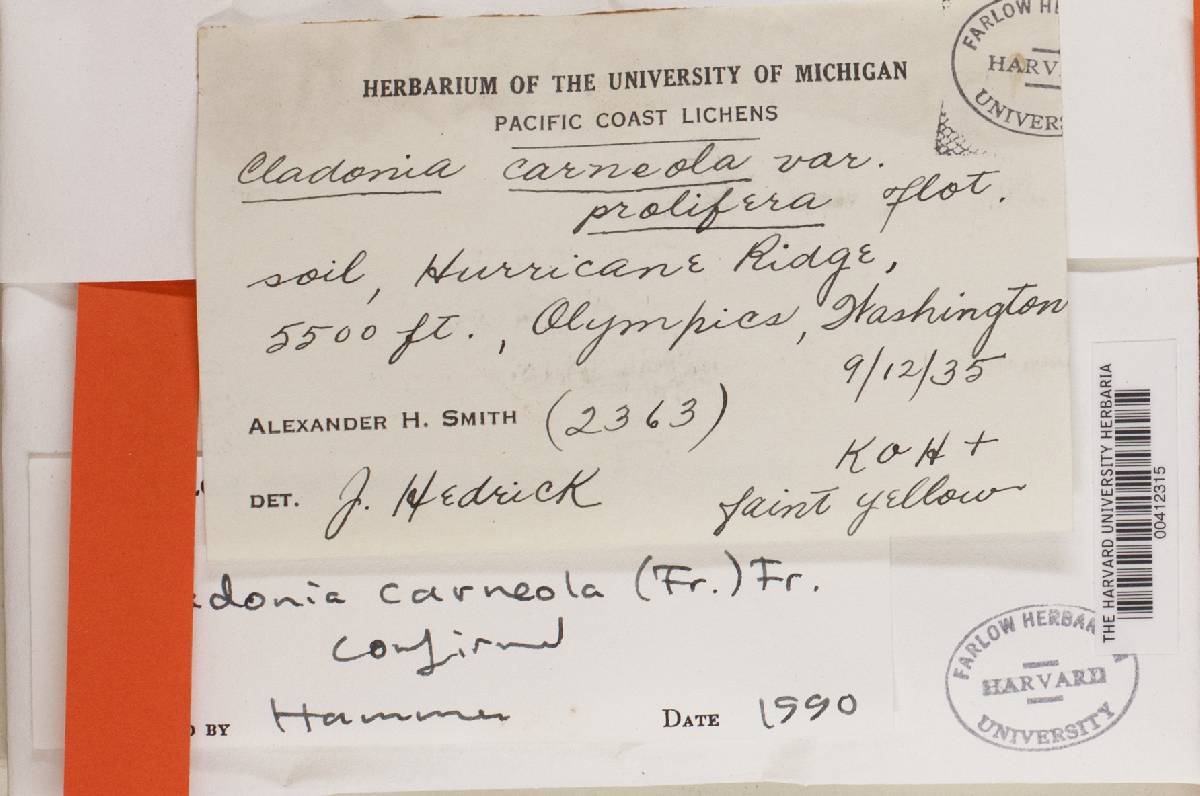 HERBARIUM OF THE UNIVERSITY OF MICHIGAN
PACIFIC COAST LICHENS
Cladonia carneola var.
prolifera Flot.
soil, Hurricane Ridge,
5500 ft., Olympics, Washington
9/12/35
ALEXANDER H. SMITH (2363)
KOH +
faint yellow
DET. J. Hedrick
donia carneola (Fr.) Fr.
confirmed
BY Hammer DATE 1990
FARLOW
HARV
UNIVERS
THE HARVARD UNIVERSITY HERBARIA
00412315
FARLOW HERBAR
HARVARD
UNIVERSITY